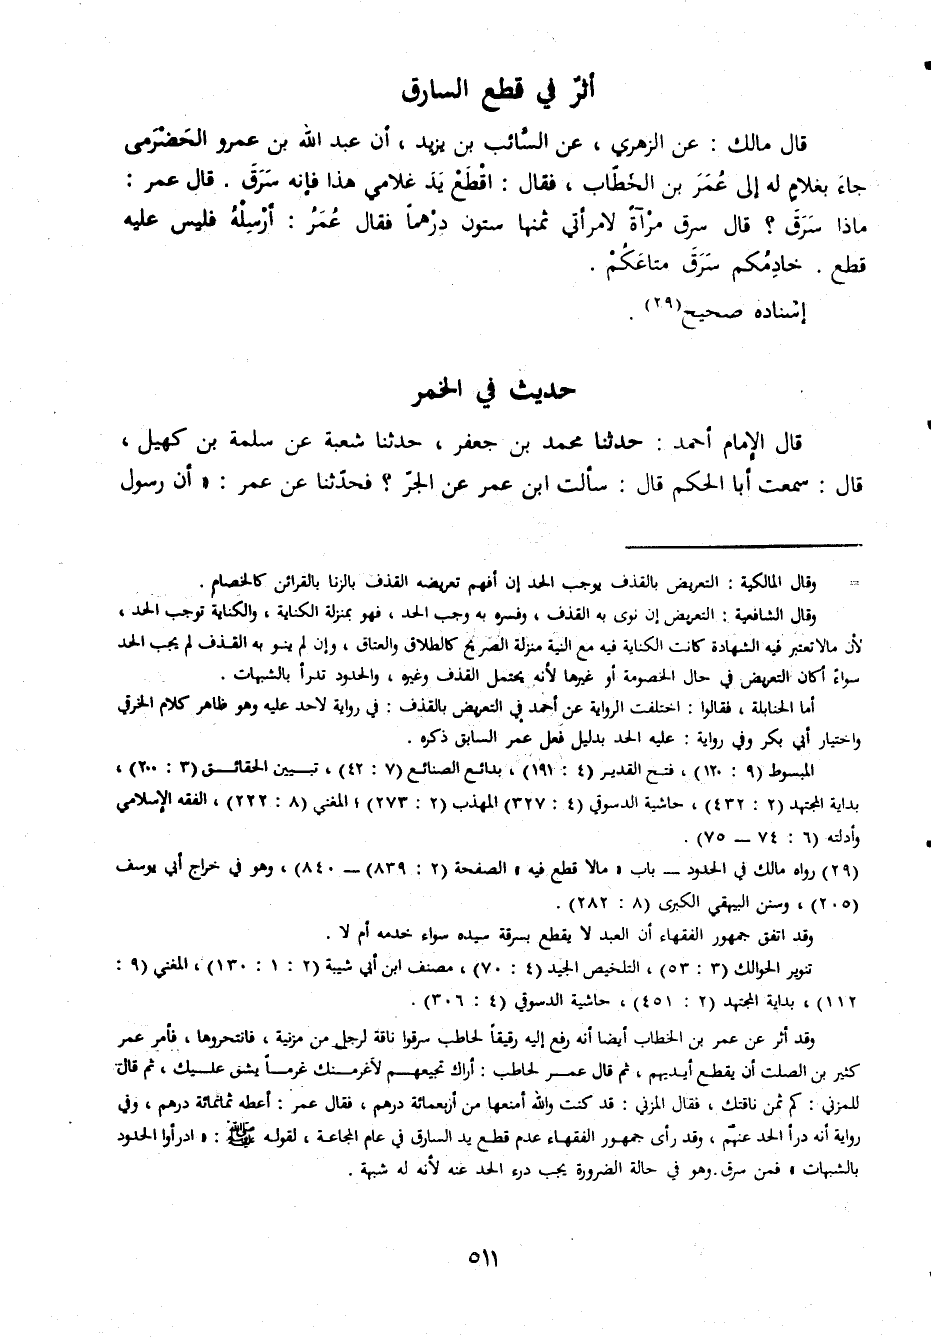 أثرّ في قطع السارق
قال مالك : عن الزهري ، عن السُّائب بن يزيد ، أن عبد الله بن عمرو الحَضْرَمى
جاءَ بغلامٍ له إلى عُمَرَ بن الخَطّاب ، فقال : اقْطَعْ يَدَ غلامي هذا فإنه سَرَقَ . قال عمر :
ماذا سَرَقَ ؟ قال سرق مرْآةً لامرأتي ثمنها ستون دِرْهماً فقال عُمَرُ : أرْسِلْهُ فليس عليه
قطع . خادِمُكم سَرَقَ متاعَكُمْ .
إسْناده صحيح(٢٩) .
حديث في الخمر
قال الإمام أحمد : حدثنا محمد بن جعفر ، حدثنا شعبة عن سلمة بن كهيل ،
قال : سمعت أبا الحكم قال : سألت ابن عمر عن الجرّ ؟ فحدّثنا عن عمر : « أن رسول
= وقال المالكية : التعريض بالقذف يوجب الحد إن أفهم تعريضه القذف بالزنا بالقرائن كالخصام .
وقال الشافعية : التعريض إن نوى به القذف ، وفسره به وجب الحد ، فهو بمنزلة الكناية ، والكناية توجب الحد ،
لأن مالاتعتبر فيه الشهادة كانت الكناية فيه مع النية منزلة الصريح كالطلاق والعتاق ، وإن لم ينو به القذف لم يجب الحد
سواءً أكان التعريض في حال الخصومة أو غيرها لأنه يحتمل القذف وغيره ، والحدود تدرأ بالشبهات .
أما الحنابلة ، فقالوا : اختلفت الرواية عن أحمد في التعريض بالقذف : في رواية لاحد عليه وهو ظاهر كلام الخرقي
واختيار أبي بكر وفي رواية : عليه الحد بدليل فعل عمر السابق ذكره .
المبسوط (٩ : ١٢٠) ، فتح القدير (٤ : ١٩١) ، بدائع الصنائع (٧ : ٤٢) ، تبيين الحقائق (٣ : ٢٠٠) ،
بداية المجتهد (٢ : ٤٣٢) ، حاشية الدسوقي (٤ : ٣٢٧) المهذب (٢ : ٢٧٣) ؛ المغني (٨ : ٢٢٢) ، الفقه الإسلامي
وأدلته (٦ : ٧٤ ــ ٧٥) .
(٢٩) رواه مالك في الحدود ــ باب « مالا قطع فيه » الصفحة (٢ : ٨٣٩) ــ ٨٤٠) ، وهو في خراج أبي يوسف
(٢٠٥) ، وسنن البيهقي الكبرى (٨ : ٢٨٢) .
وقد اتفق جمهور الفقهاء أن العبد لا يقطع بسرقة سيده سواء خدمه أم لا .
تنوير الحوالك (٣ : ٥٣) ، التلخيص الجيد (٤ : ٧٠) ، مصنف ابن أبي شيبة (٢ : ١ : ١٣٠) ، المغني (٩ :
١١٢) ، بداية المجتهد (٢ : ٤٥١) ، حاشية الدسوقي (٤ : ٣٠٦) .
وقد أثر عن عمر بن الخطاب أيضا أنه رفع إليه رقيقاً لحاطب سرقوا ناقة لرجل من مزنية ، فانتحروها ، فأمر عمر
كثير بن الصلت أن يقطع أيديهم ، ثم قال عمر لحاطب : أراك تجيعهم لأغرمنك غرماً يشق عليك ، ثم قال
للمزني : كم ثمن ناقتك ، فقال المزني : قد كنت والله أمنعها من أربعمائة درهم ، فقال عمر : أعطه ثمانمائة درهم ، وفي
رواية أنه درأ الحد عنهم ، وقد رأى جمهور الفقهاء عدم قطع يد السارق في عام المجاعة ، لقوله ﷺ : « ادرأوا الحدود
بالشبهات » فمن سرق وهو في حالة الضرورة يجب درء الحد عنه لأنه له شبهة .
٥١١